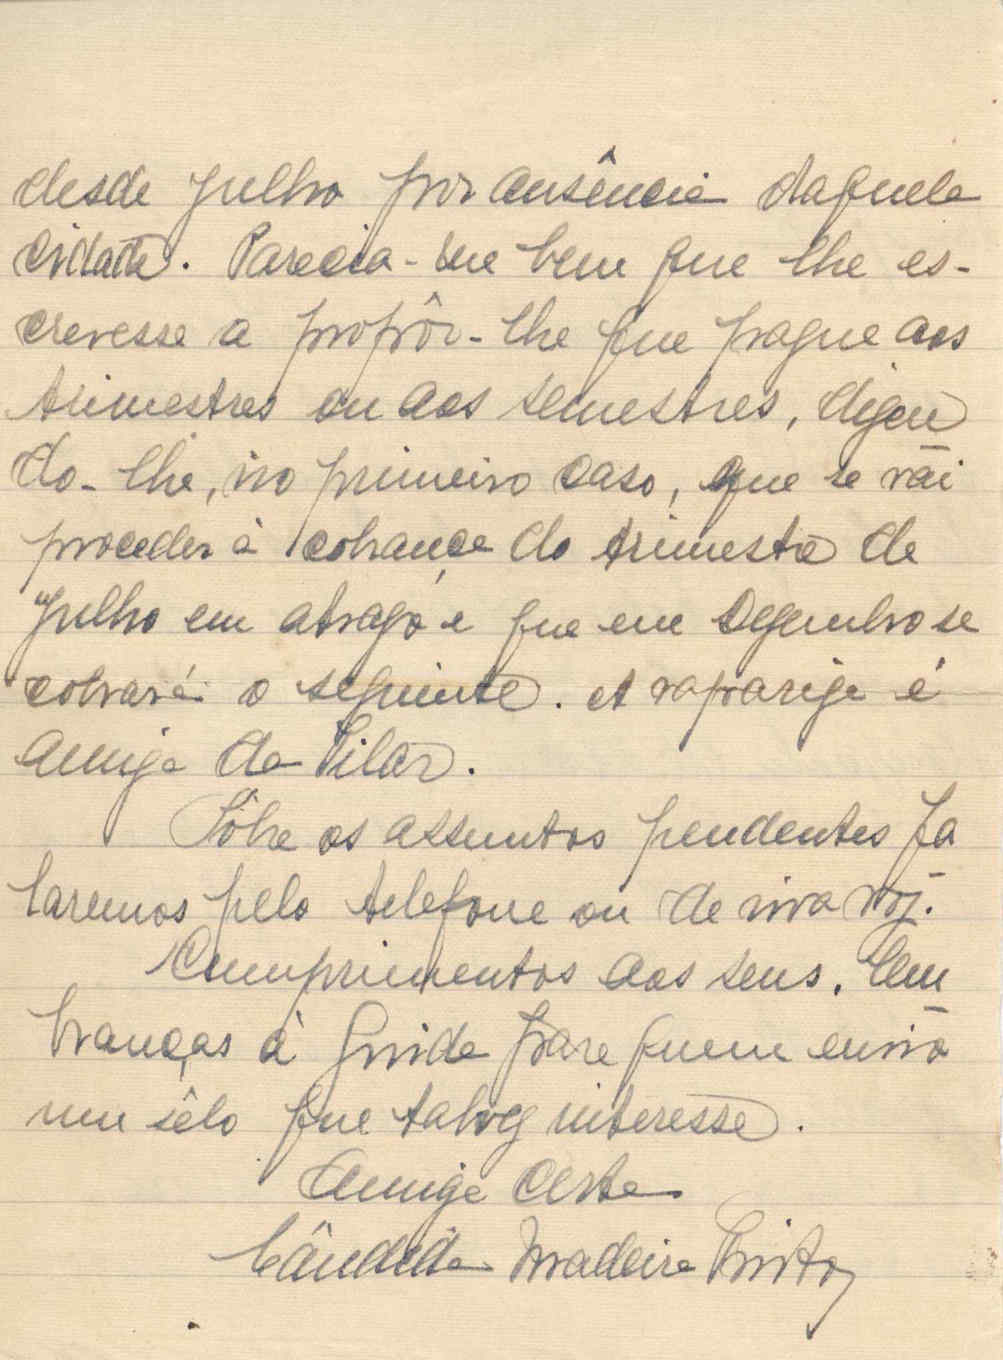 desde Julho por ausência daquela
cidade. Parecia-me bem que lhe es-
crevesse a propôr-lhe que pague aos
trimestres ou aos semestres, dizen
do-lhe, no primeiro caso, que se vai
proceder à cobrança do trimestre de
Julho em atrazo e que em Dezembro se
cobrará o seguinte. A rapariga é
amiga da Pilar.
Sôbre os assuntos pendentes fa
laremos pelo telefone ou de viva voz.
Cumprimentos aos seus. Lem
branças à Guida para quem envio
um sêlo que talvez interesse.
Amiga certa
Cândida Madeira Pinto